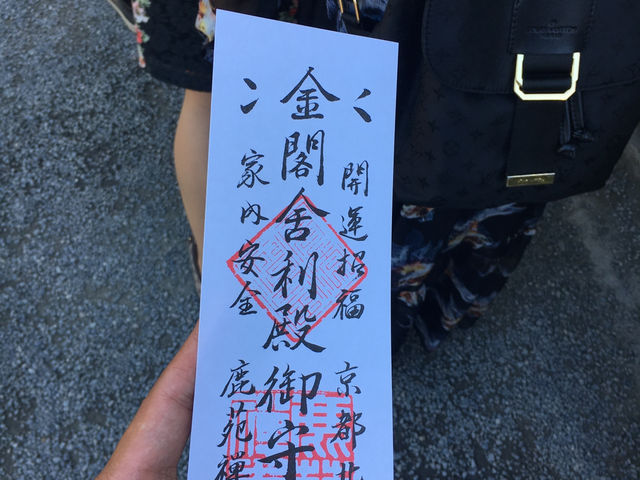 開運招福 京都北
金閣舍利殿御守
家内安全 鹿苑禅